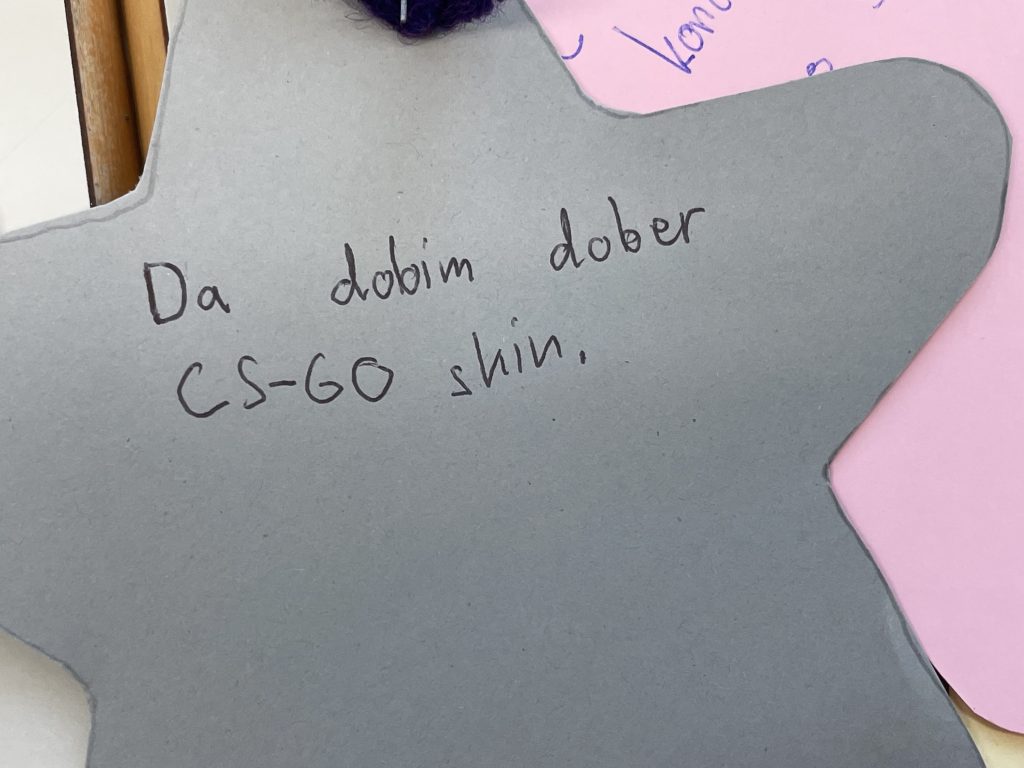 Da dobim dober
CS-GO skin.